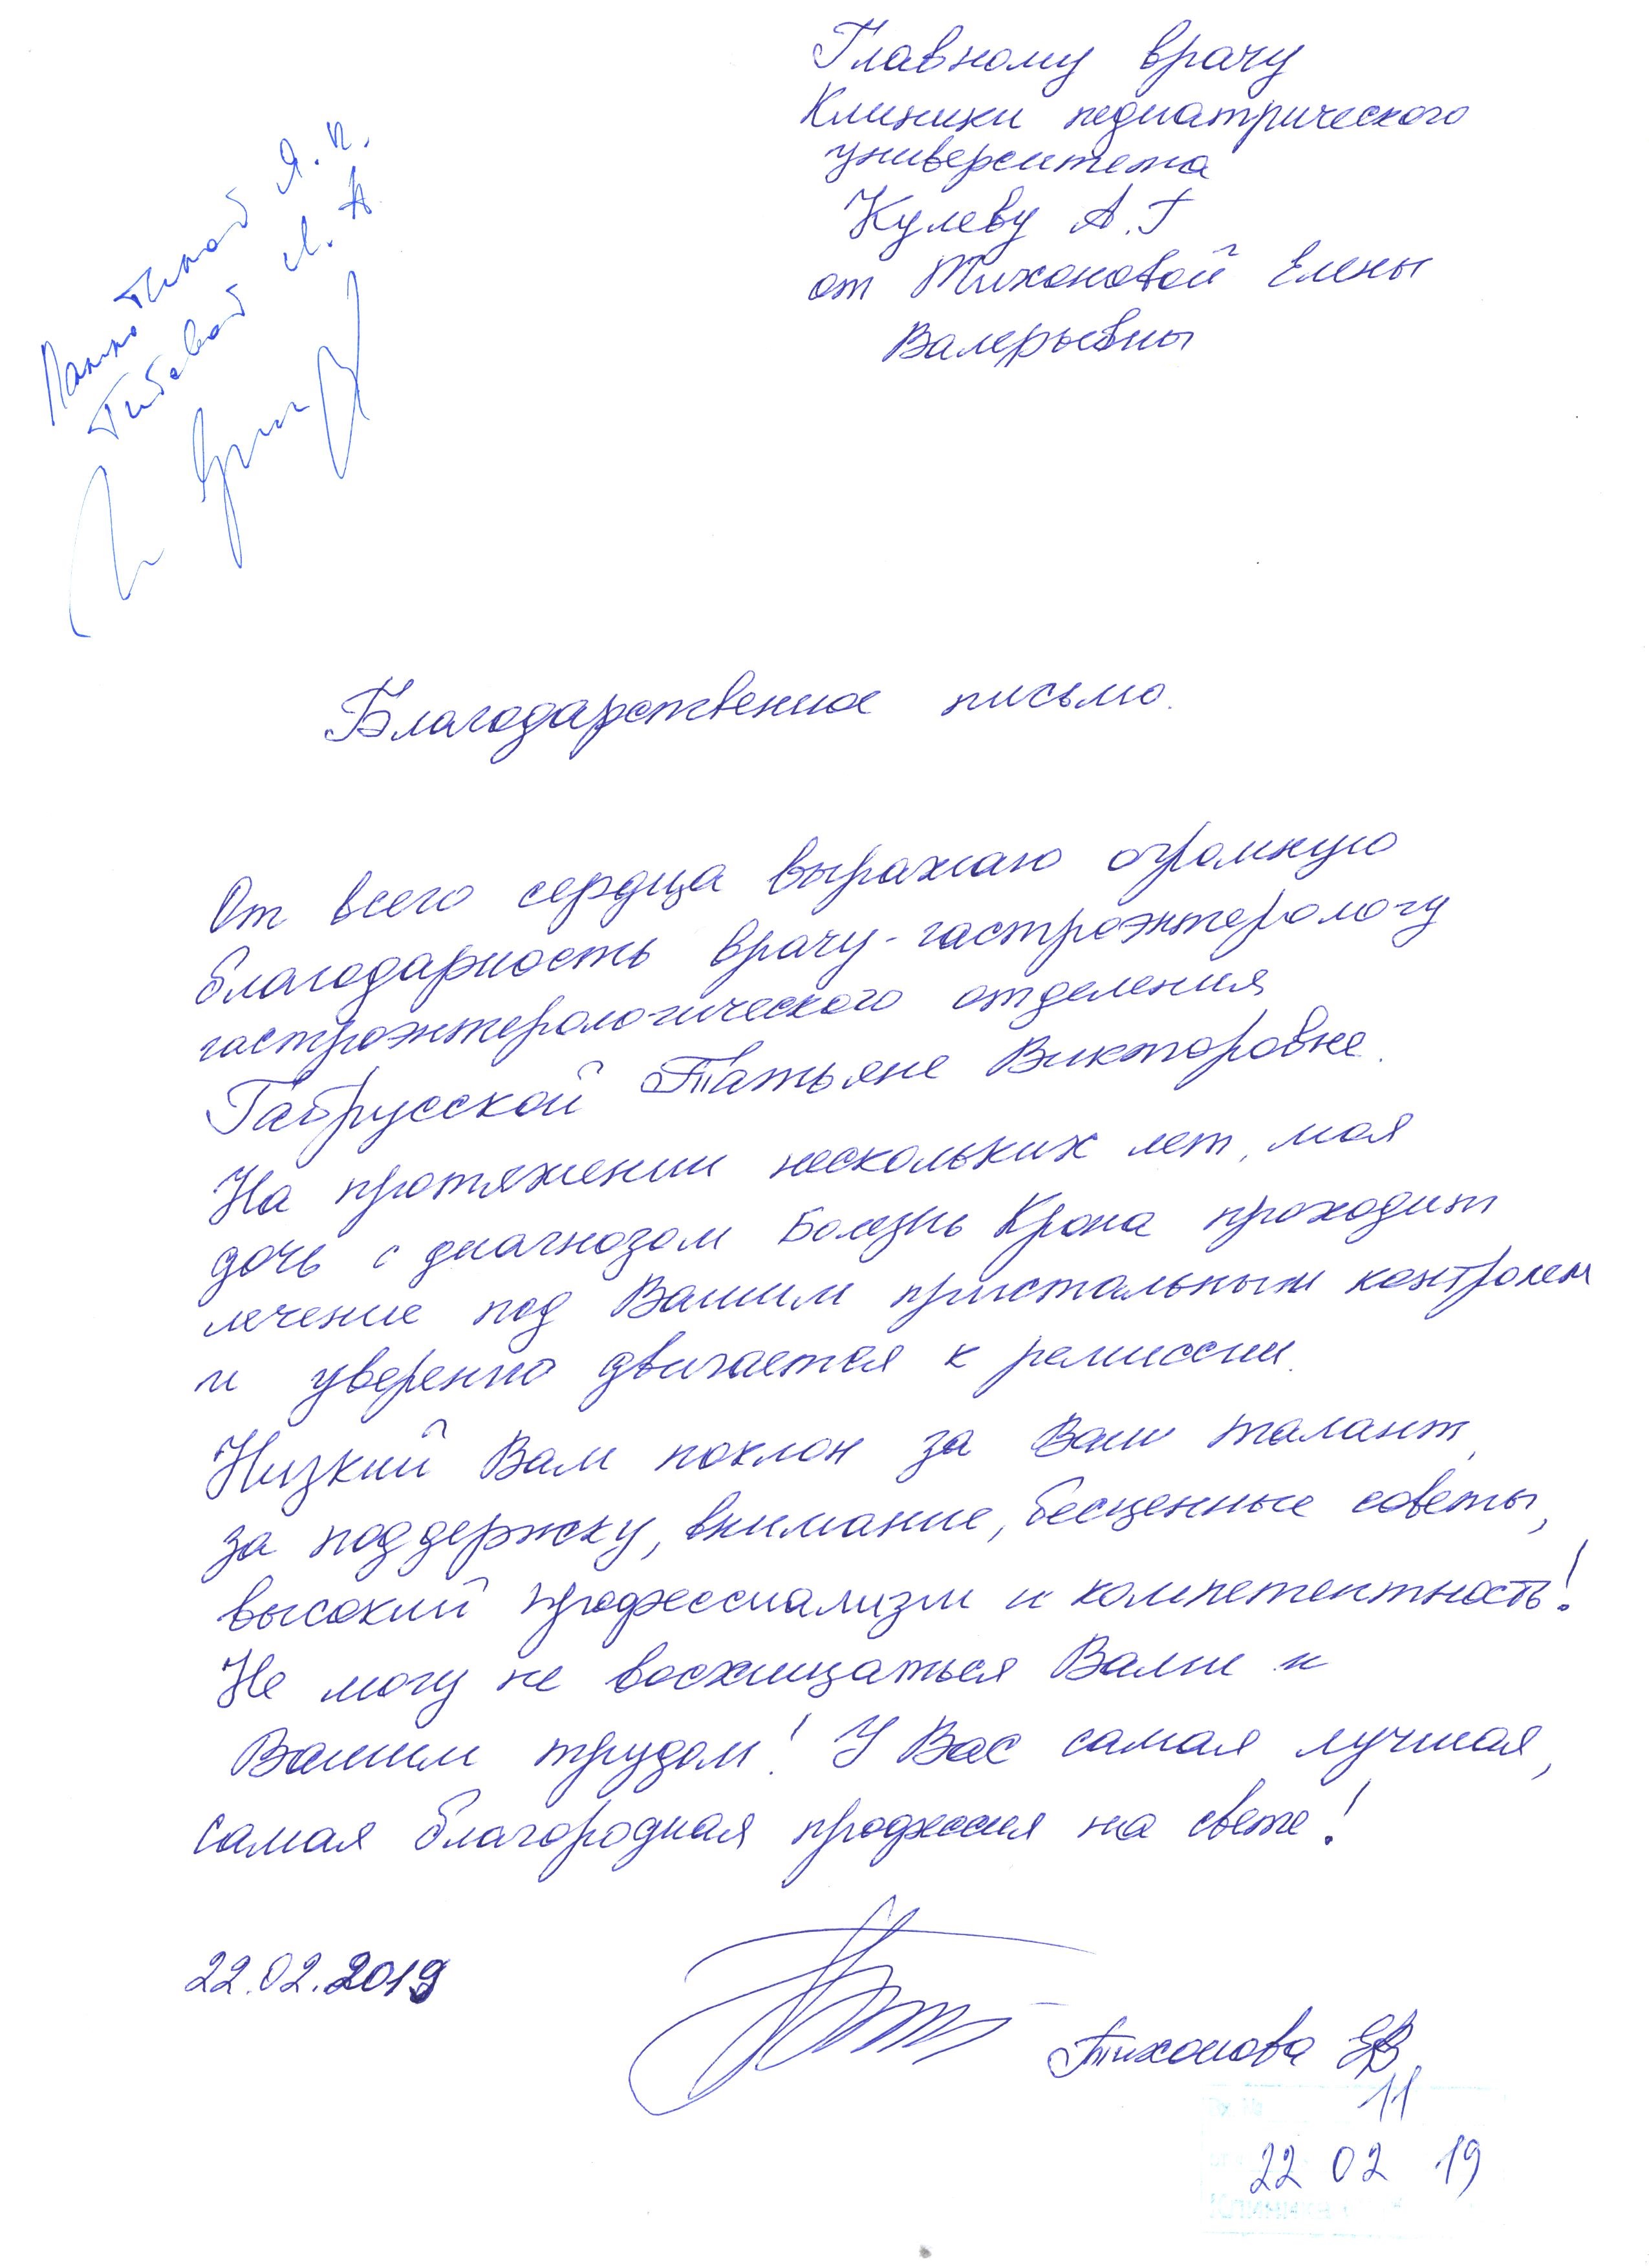 Главному врачу
Клиники педиатрического
университета
Кулеву А.Г
от Тихоновой Елены
Валерьевны
Я.П.
Л.А
Благодарственное письмо.
От всего сердца выражаю огромную
благодарность врачу-гастроэнтерологу
гастроэнтерологического отделения
Габрусской Татьяне Викторовне.
На протяжении нескольких лет, моя
дочь с диагнозом Болезнь Крона проходит
лечение под Вашим пристальным контролем
и уверенно двигается к ремиссии.
Низкий Вам поклон за Ваш талант,
за поддержку, внимание, бесценные советы,
высокий профессиализм и компетентность!
Не могу не восхищаться Вами и
Вашим трудом! У Вас самая лучшая,
самая благородная профессия на свете!
22.02.2019
Тихонова ЕВ
11
22 02 19